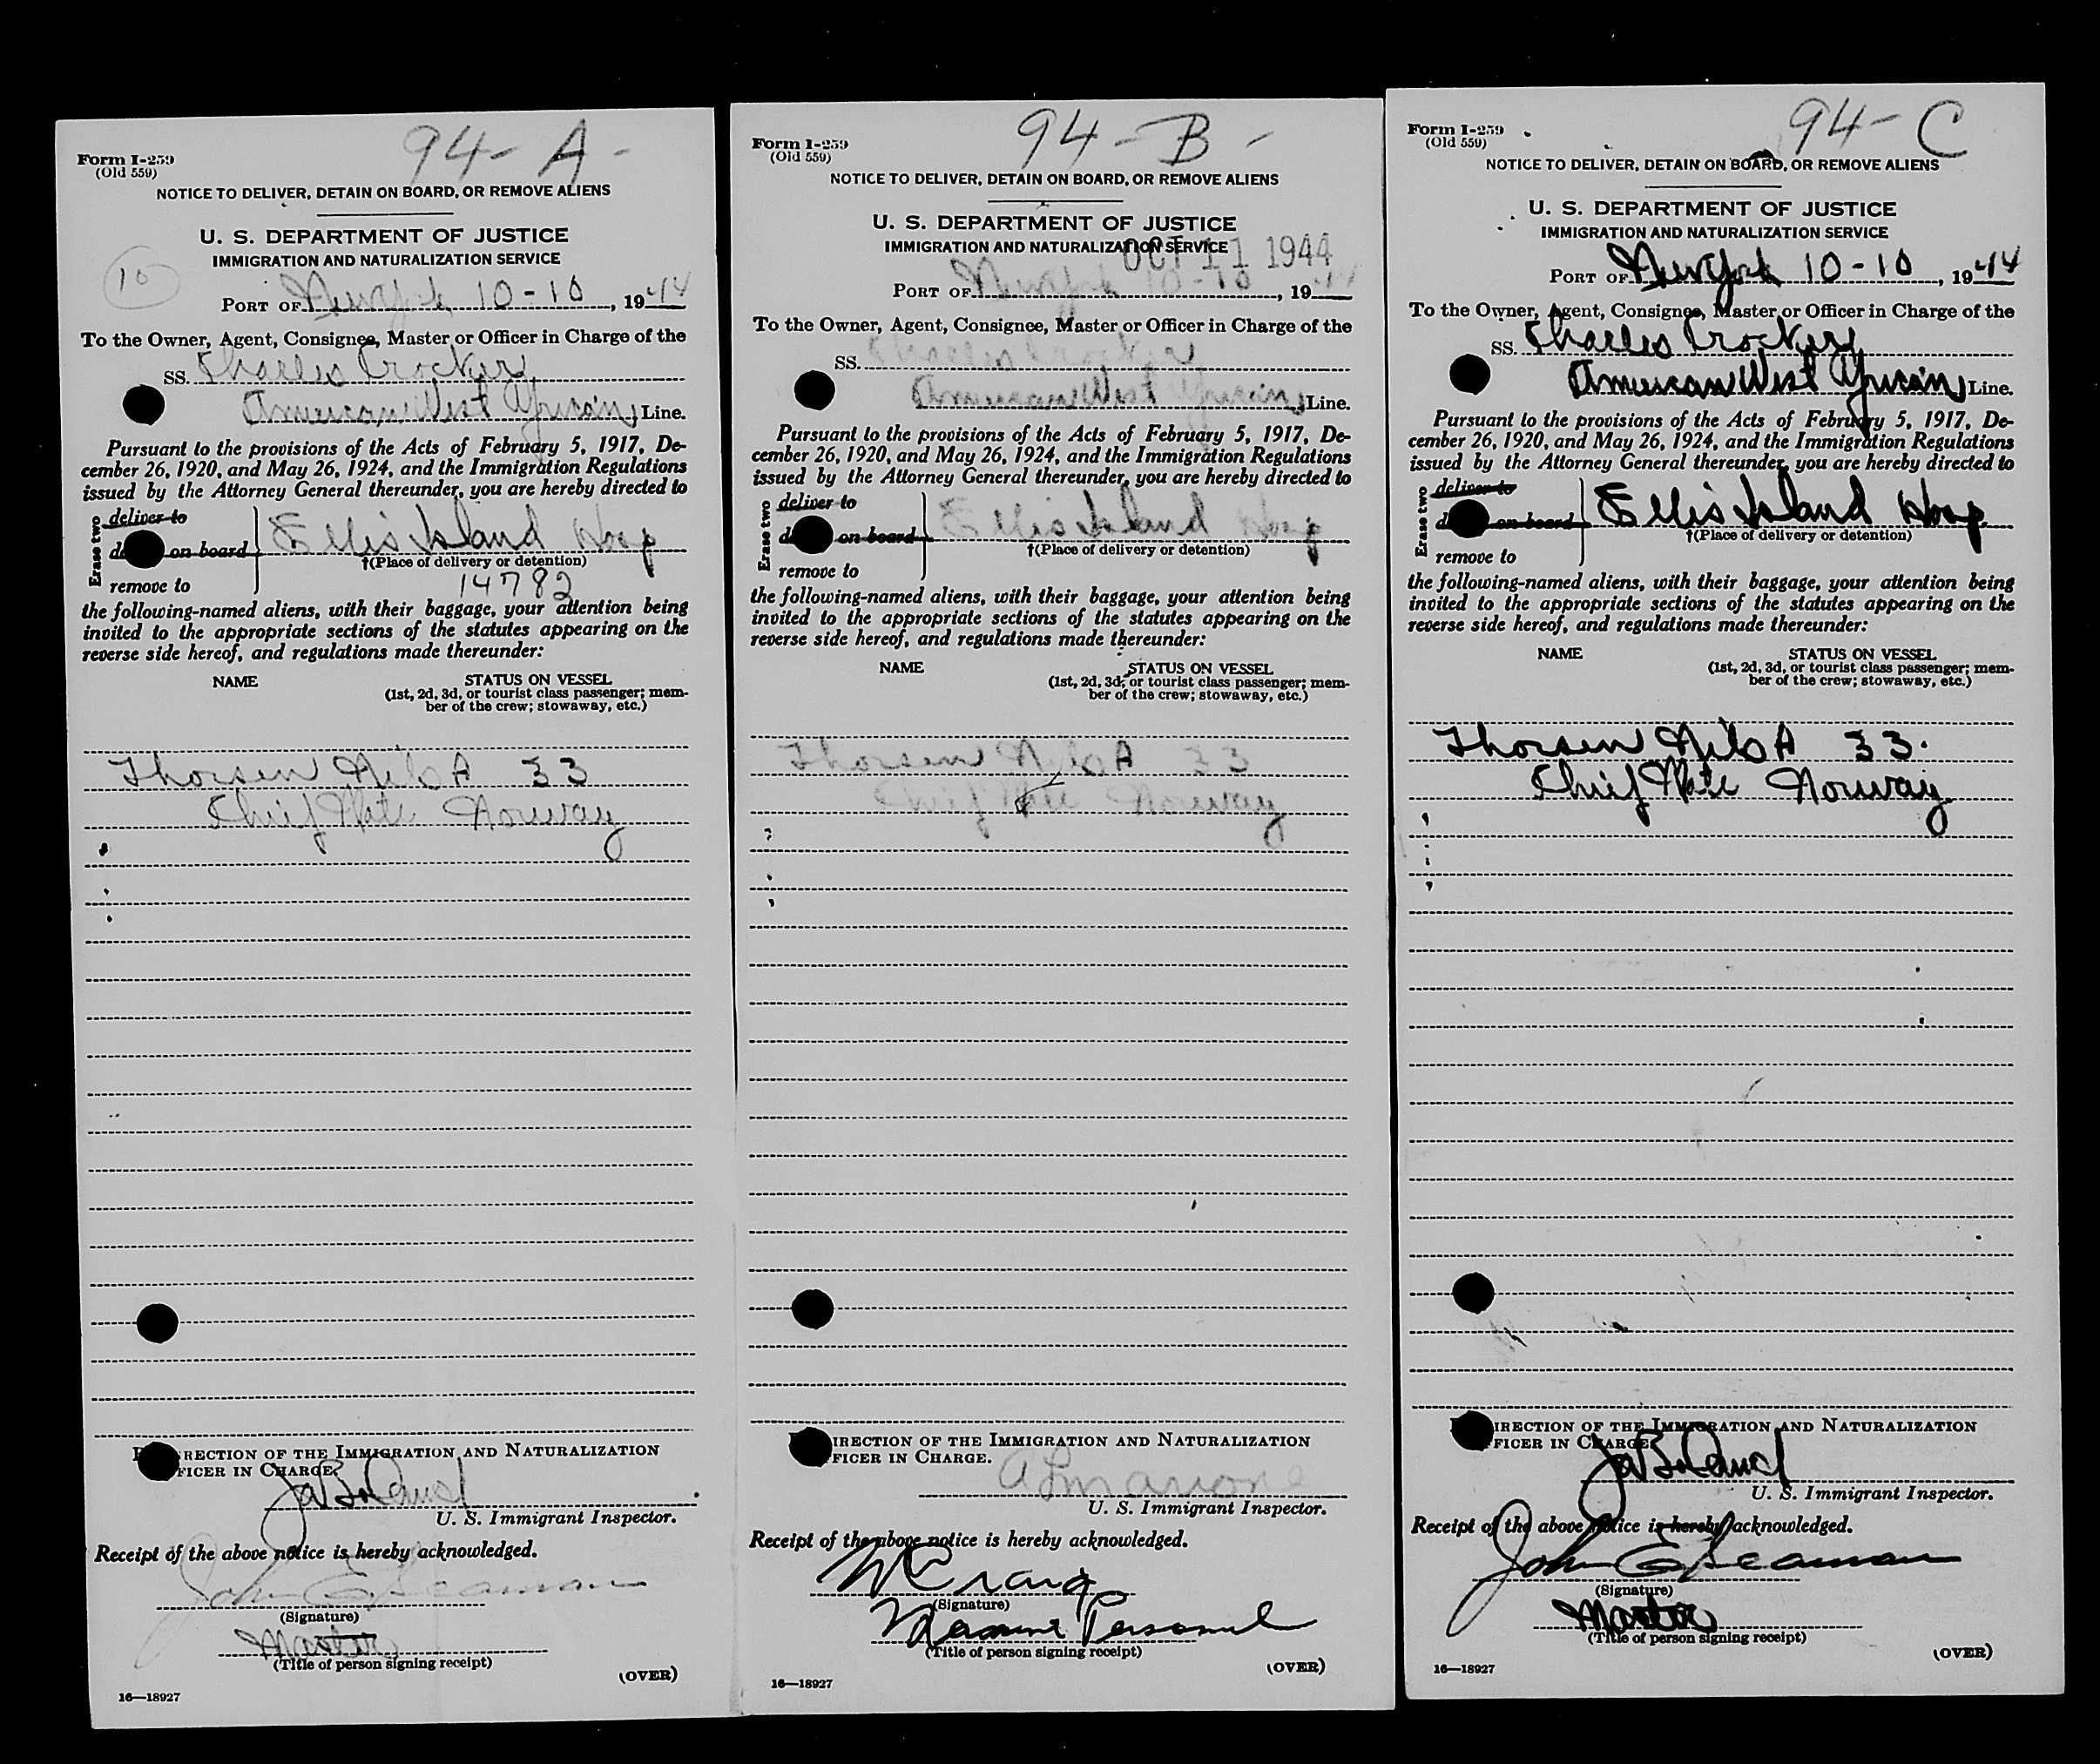 94-A-
Form I-259
(Old 559)
NOTICE TO DELIVER, DETAIN ON BOARD, OR REMOVE ALIENS
U. S. DEPARTMENT OF JUSTICE
IMMIGRATION AND NATURALIZATION SERVICE
10
PORT OF New York 10-10, 1944
To the Owner, Agent, Consignee, Master or Officer in Charge of the
SS. Charles Crocker
American West African Line.
Pursuant to the provisions of the Acts of February 5, 1917, De-
cember 26, 1920, and May 26, 1924, and the Immigration Regulations
issued by the Attorney General thereunder, you are hereby directed to
Erase two
deliver to
on board
Ellis Island Hosp
†(Place of delivery or detention)
remove to
14782
the following-named aliens, with their baggage, your attention being
invited to the appropriate sections of the statutes appearing on the
reverse side hereof, and regulations made thereunder:
NAME STATUS ON VESSEL
(1st, 2d, 3d, or tourist class passenger; mem-
ber of the crew; stowaway, etc.)
Thorsen Nils A 33
Chief Mate Norway
RECTION OF THE IMMIGRATION AND NATURALIZATION
FICER IN CHARGE.
U. S. Immigrant Inspector.
Receipt of the above notice is hereby acknowledged.
John E Seaman
(Signature)
Master
(Title of person signing receipt)
(OVER)
16—18927
94-B-
Form I-259
(Old 559)
NOTICE TO DELIVER, DETAIN ON BOARD, OR REMOVE ALIENS
U. S. DEPARTMENT OF JUSTICE
IMMIGRATION AND NATURALIZATION SERVICE
OCT 11 1944
PORT OF New York 10-10, 1944
To the Owner, Agent, Consignee, Master or Officer in Charge of the
SS. Charles Crocker
American West African Line.
Pursuant to the provisions of the Acts of February 5, 1917, De-
cember 26, 1920, and May 26, 1924, and the Immigration Regulations
issued by the Attorney General thereunder, you are hereby directed to
Erase two
deliver to
on board
Ellis Island Hosp
†(Place of delivery or detention)
remove to
the following-named aliens, with their baggage, your attention being
invited to the appropriate sections of the statutes appearing on the
reverse side hereof, and regulations made thereunder:
NAME STATUS ON VESSEL
(1st, 2d, 3d, or tourist class passenger; mem-
ber of the crew; stowaway, etc.)
Thorsen Nils A 33
Chief Mate Norway
IRECTION OF THE IMMIGRATION AND NATURALIZATION
FFICER IN CHARGE.
U. S. Immigrant Inspector.
Receipt of the above notice is hereby acknowledged.
W Craig
(Signature)
Marine Personnel
(Title of person signing receipt)
(OVER)
16—18927
94-C
Form I-259
(Old 559)
NOTICE TO DELIVER, DETAIN ON BOARD, OR REMOVE ALIENS
U. S. DEPARTMENT OF JUSTICE
IMMIGRATION AND NATURALIZATION SERVICE
PORT OF New York 10-10, 1944
To the Owner, Agent, Consignee, Master or Officer in Charge of the
SS. Charles Crocker
American West African Line.
Pursuant to the provisions of the Acts of February 5, 1917, De-
cember 26, 1920, and May 26, 1924, and the Immigration Regulations
issued by the Attorney General thereunder, you are hereby directed to
Erase two
deliver to
on board
Ellis Island Hosp
†(Place of delivery or detention)
remove to
the following-named aliens, with their baggage, your attention being
invited to the appropriate sections of the statutes appearing on the
reverse side hereof, and regulations made thereunder:
NAME STATUS ON VESSEL
(1st, 2d, 3d, or tourist class passenger; mem-
ber of the crew; stowaway, etc.)
Thorsen Nils A 33
Chief Mate Norway
IRECTION OF THE IMMIGRATION AND NATURALIZATION
FFICER IN CHARGE.
U. S. Immigrant Inspector.
Receipt of the above notice is hereby acknowledged.
John E Seaman
(Signature)
Master
(Title of person signing receipt)
(OVER)
16—18927